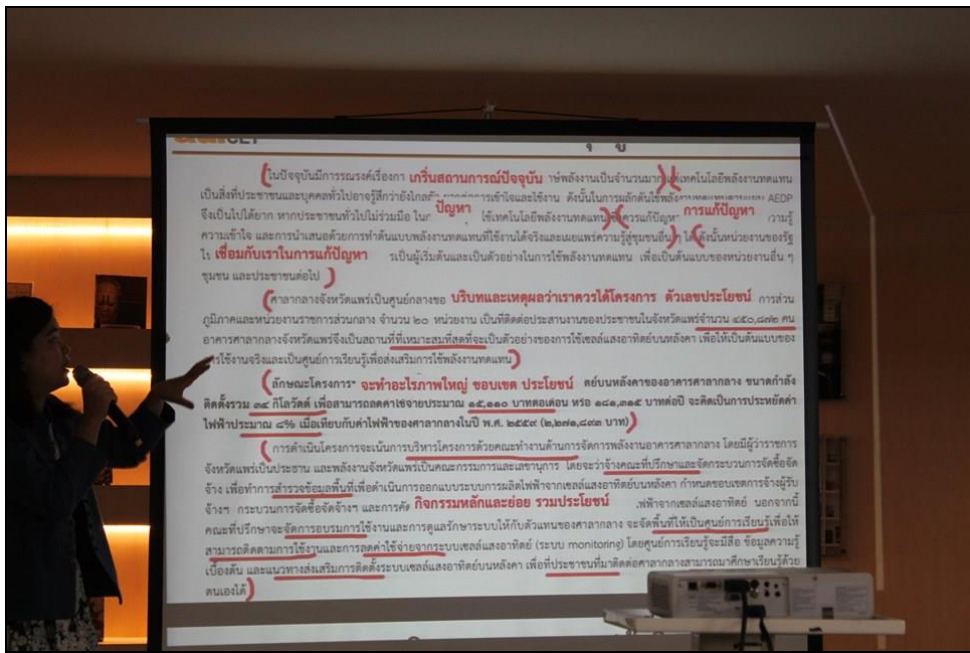 CET
ในปัจจุบันมีการรณรงค์เรื่องกา เกริ่นสถานการณ์ปัจจุบัน าษ์พลังงานเป็นจำนวนมาก เทคโนโลยีพลังงานทดแทน
เป็นสิ่งที่ประชาชนและบุคคลทั่วไปอาจรู้สึกว่ายังไกลตัว ารเข้าใจและใช้งาน ดังนั้นในการผลักดันใช้พลังงานทดแทน AEDP
จึงเป็นไปได้ยาก หากประชาชนทั่วไปไม่ร่วมมือ ในก ปัญหา ใช้เทคโนโลยีพลังงานทดแทน ควรแก้ปัญห การแก้ปัญหา วามรู้
ความเข้าใจ และการนำเสนอด้วยการทำต้นแบบพลังงานทดแทนที่ใช้งานได้จริงและเผยแพร่ความรู้สู่ชุมชนอื่น ๆ ได้ ดังนั้นหน่วยงานของรัฐ
เชื่อมกับเราในการแก้ปัญหา รเป็นผู้เริ่มต้นและเป็นตัวอย่างในการใช้พลังงานทดแทน เพื่อเป็นต้นแบบของหน่วยงานอื่น ๆ
ชุมชน และประชาชนต่อไป
ศาลากลางจังหวัดแพร่เป็นศูนย์กลางขอ บริบทและเหตุผลว่าเราควรได้โครงการ ตัวเลขประโยชน์ การส่วน
ภูมิภาคและหน่วยงานราชการส่วนกลาง จำนวน ๒๐ หน่วยงาน เป็นที่ติดต่อประสานงานของประชาชนในจังหวัดแพร่จำนวน ๔๕๐,๘๗๒ คน
อาคารศาลากลางจังหวัดแพร่จึงเป็นสถานที่ที่เหมาะสมที่สุดที่จะเป็นตัวอย่างของการใช้เซลล์แสงอาทิตย์บนหลังคา เพื่อให้เป็นต้นแบบของ
ารใช้งานจริงและเป็นศูนย์การเรียนรู้เพื่อส่งเสริมการใช้พลังงานทดแทน
ลักษณะโครงการ จะทำอะไรภาพใหญ่ ขอบเขต ประโยชน์ ตย์บนหลังคาของอาคารศาลากลาง ขนาดกำลัง
ติดตั้งรวม ๓๔ กิโลวัตต์ เพื่อสามารถลดค่าใช้จ่ายประมาณ ๑๕,๑๑๐ บาทต่อเดือน หรือ ๑๘๑,๓๑๕ บาทต่อปี จะคิดเป็นการประหยัดค่า
ไฟฟ้าประมาณ ๘% เมื่อเทียบกับค่าไฟฟ้าของศาลากลางในปี พ.ศ. ๒๕๕๙ (๒,๒๗๑,๘๙๓ บาท)
การดำเนินโครงการจะเน้นการบริหารโครงการด้วยคณะทำงานด้านการจัดการพลังงานอาคารศาลากลาง โดยมีผู้ว่าราชการ
จังหวัดแพร่เป็นประธาน และพลังงานจังหวัดแพร่เป็นคณะกรรมการและเลขานุการ โดยจะว่าจ้างคณะที่ปรึกษาและจัดกระบวนการจัดซื้อจัด
จ้าง เพื่อทำการสำรวจข้อมูลพื้นที่เพื่อดำเนินการออกแบบระบบการผลิตไฟฟ้าจากเซลล์แสงอาทิตย์บนหลังคา กำหนดขอบเขตการจ้างผู้รับ
จ้างฯ กระบวนการจัดซื้อจัดจ้างฯ และการคั กิจกรรมหลักและย่อย รวมประโยชน์ ฟฟ้าจากเซลล์แสงอาทิตย์ นอกจากนี้
คณะที่ปรึกษาจะจัดการอบรมการใช้งานและการดูแลรักษาระบบให้กับตัวแทนของศาลากลาง จะจัดพื้นที่ให้เป็นศูนย์การเรียนรู้เพื่อให้
สามารถติดตามการใช้งานและการลดค่าใช้จ่ายจากระบบเซลล์แสงอาทิตย์ (ระบบ monitoring) โดยศูนย์การเรียนรู้จะมีสื่อ ข้อมูลความรู้
เบื้องต้น และแนวทางส่งเสริมการติดตั้งระบบเซลล์แสงอาทิตย์บนหลังคา เพื่อที่ประชาชนที่มาติดต่อศาลากลางสามารถมาศึกษาเรียนรู้ด้วย
ตนเองได้